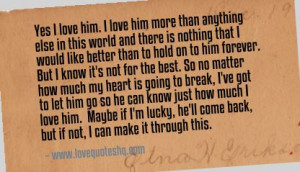 Yes I love him. I love him more than anything
else in this world and there is nothing that I
would like better than to hold on to him forever.
But I know it's not for the best. So no matter
how much my heart is going to break, I've got
to let him go so he can know just how much I
love him. Maybe if I'm lucky, he'll come back,
but if not, I can make it through this.
- www.lovequoteshq.com